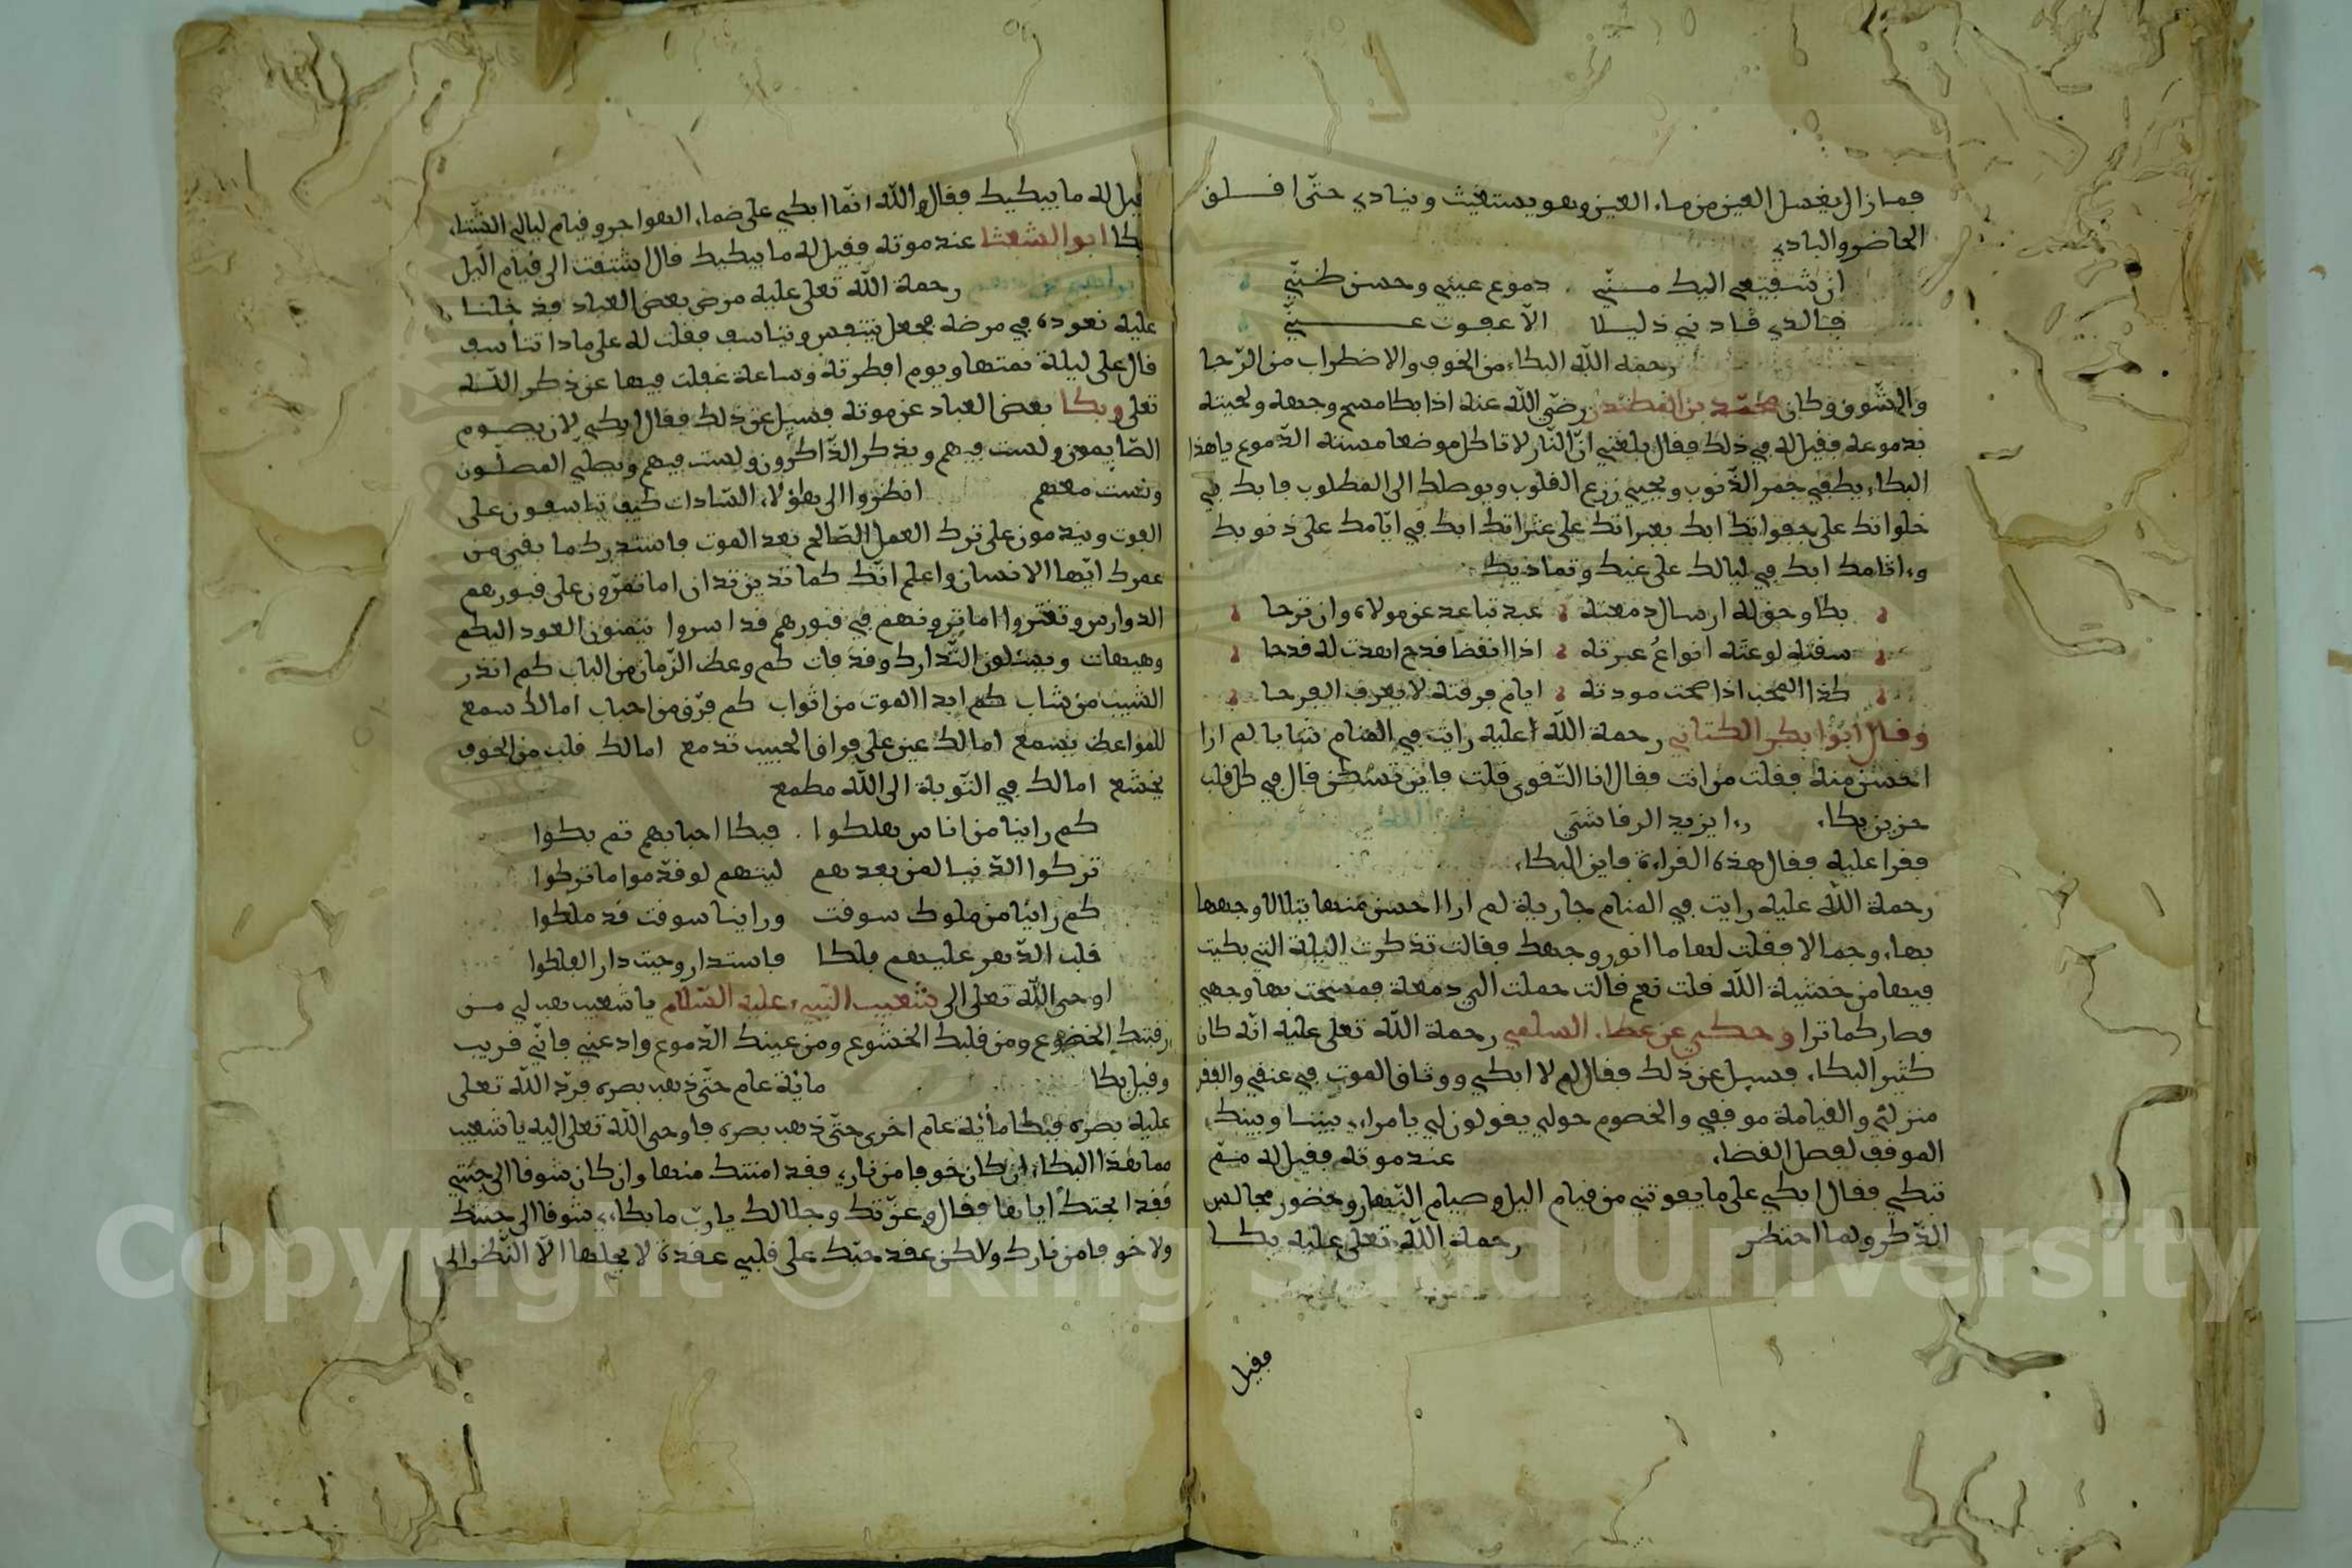 فمازال يغسل العين من ماء العين وهو يستغيث وينادي حتّى افلق
الحاضر والبادي
ان شفيعي اليك منّي دموع عيني وحسن ظنّي
فبالذي قادني ذليلا الا عفوت عنّي
رحمه الله البكاء من الخوف والاضطراب من الرّجا
والشّوق وكان محمّد بن المنكدر رضي الله عنه اذا بكا مسح وجهه ولحيته
بدموعه فقيل له في ذلك فقال بلغني انّ النّار لا تاكل موضعا مسته الدّموع ياهذا
البكاء يطفي جمر الذّنوب ويحيي زرع القلوب ويوصلك الى المطلوب فابك في
خلواتك على جفواتك ابك بعبراتك على عثراتك ابك في ايّامك على ذنوبك
وءاثامك ابك في ليالك على غيك وتماديك
بكا وحق له ارسال دمعته عبد تباعد عن مولاه وان نزحا
سقته لوعته انواعُ عبرته اذا انقضا قدح اهدت له قدحا
كذا المحب اذا صحت مودته ايام فرقته لا يعرف الفرحا
وقال أبوا بكر الكتاني رحمة الله عليه رايت في المنام شابا لم ارا
احسن منه فقلت من انت فقال انا التّقوى قلت فاين تسكن قال في كل قلب
حزين بكاء رءا يزيد الرقاشي
فقرا عليه فقال هذه القراءة فاين البكاء
رحمة الله عليه رايت في المنام جارية لم ارا احسن منها يتلالا وجهها
بهاء وجمالا فقلت لها ما انور وجهك فقالت تذكرت الليلة التي بكيت
فيها من خشية الله قلت نعم قالت حملت الي دمعة فمسحت بها وجهي
فصار كما ترا وحكي عن عطاء السلمي رحمة الله تعلى عليه انّه كان
كثير البكاء فسيل عن ذلك فقال لم لا ابكي ووثاق الموت في عنقي والقبر
منزلي والقيامة موقفي والخصوم حولي يقولون لي يا مراءي بيننا وبينك
الموقف لفصل القضاء عند موته فقيل له ممّ
تبكي فقال ابكي على ما يفوتني من قيام اليل وصيام النّهار وحضور مجالس
الذّكر ولما احتظر رحمة الله تعلى عليه بكا
فقيل
قيل له ما يبكيك فقال والله انّما ابكي على ضماء الهواجر وقيام ليالي الشّتاء
بكا ابوا الشعثا عند موته فقيل له ما يبكيك قال اشتقت الى قيام الّيل
رحمة الله تعلى عليه مرض بعض العباد فدخلنا
عليه نعوده في مرضه فجعل يتنفس ويتاسف فقلت له على ماذا تتأسف
قال على ليلة نمتها ويوم افطرته وساعة غفلت فيها عن ذكر اللّه
تعلى وبكا بعض العباد عن موته فسيل عن ذلك فقال ابكي لان يصوم
الصّايمون ولست فيهم ويذكر الذّاكرون ولست فيهم ويصلّي المصلّون
ولست معهم انظروا الى هؤلاء السّادات كيف يتاسفون على
الفوت ويندمون على ترك العمل الصّالح بعد الموت فاستدرك ما بقي من
عمرك ايّها الانسان واعلم انّك كما تدين تدان اما تمرّون على قبورهم
الدوارس وتغتروا اما ترونهم في قبورهم قد اسروا يتمنون العود اليكم
وهيهات ويسئلون التّدارك وقد فات كم وعظ الزّمان من الباب كم انذر
الشيب من شاب كم ابدا الموت من اثواب كم فرّق من احباب امالك سمع
للمواعظ يسمع امالك عين على فراق الحبيب تدمع امالك قلب من الخوف
يخشع امالك في التّوبة الى اللّه مطمع
كم راينا من اناس هلكوا فبكا احبابهم ثم بكوا
تركوا الدّنيا لمن بعدهم ليتهم لو قدّموا ما تركوا
كم راينا من ملوك سوقت وراينا سوقت قد ملكوا
قلب الدّهر عليهم فلكا فاستدار وحيث دار الفلكوا
اوحى اللّه تعلى الى شعيب النّبيء عليه السّلام يا شعيب هب لي من
رقبتك الخضوع ومن قلبك الخشوع ومن عينك الدّموع وادعني فانّي قريب
وقيل بكا مائة عام حتّى ذهب بصره فردّ اللّه تعلى
عليه بصره فبكا مائة عام اخرى حتّى ذهب بصره فاوحى الله تعلى اليه يا شعيب
ما هذا البكاء ان كان خوفا من ناري فقد امنتك منها وان كان شوقا الى جنّتي
فقد ابحتك اياها فقال وعزّتك وجلالك يا ربّ ما بكاءي شوقا الى جنتك
ولا خوفا من نارك ولاكن عقد حبّك على قلبي عقدة لا يحلها الّا النّظر الى